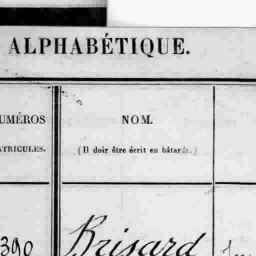 ALPHABÉTIQUE.
UMÉROS
NOM.
ATRICULES.
(Il doir être écrit en bâtarde.)
390
Brisard